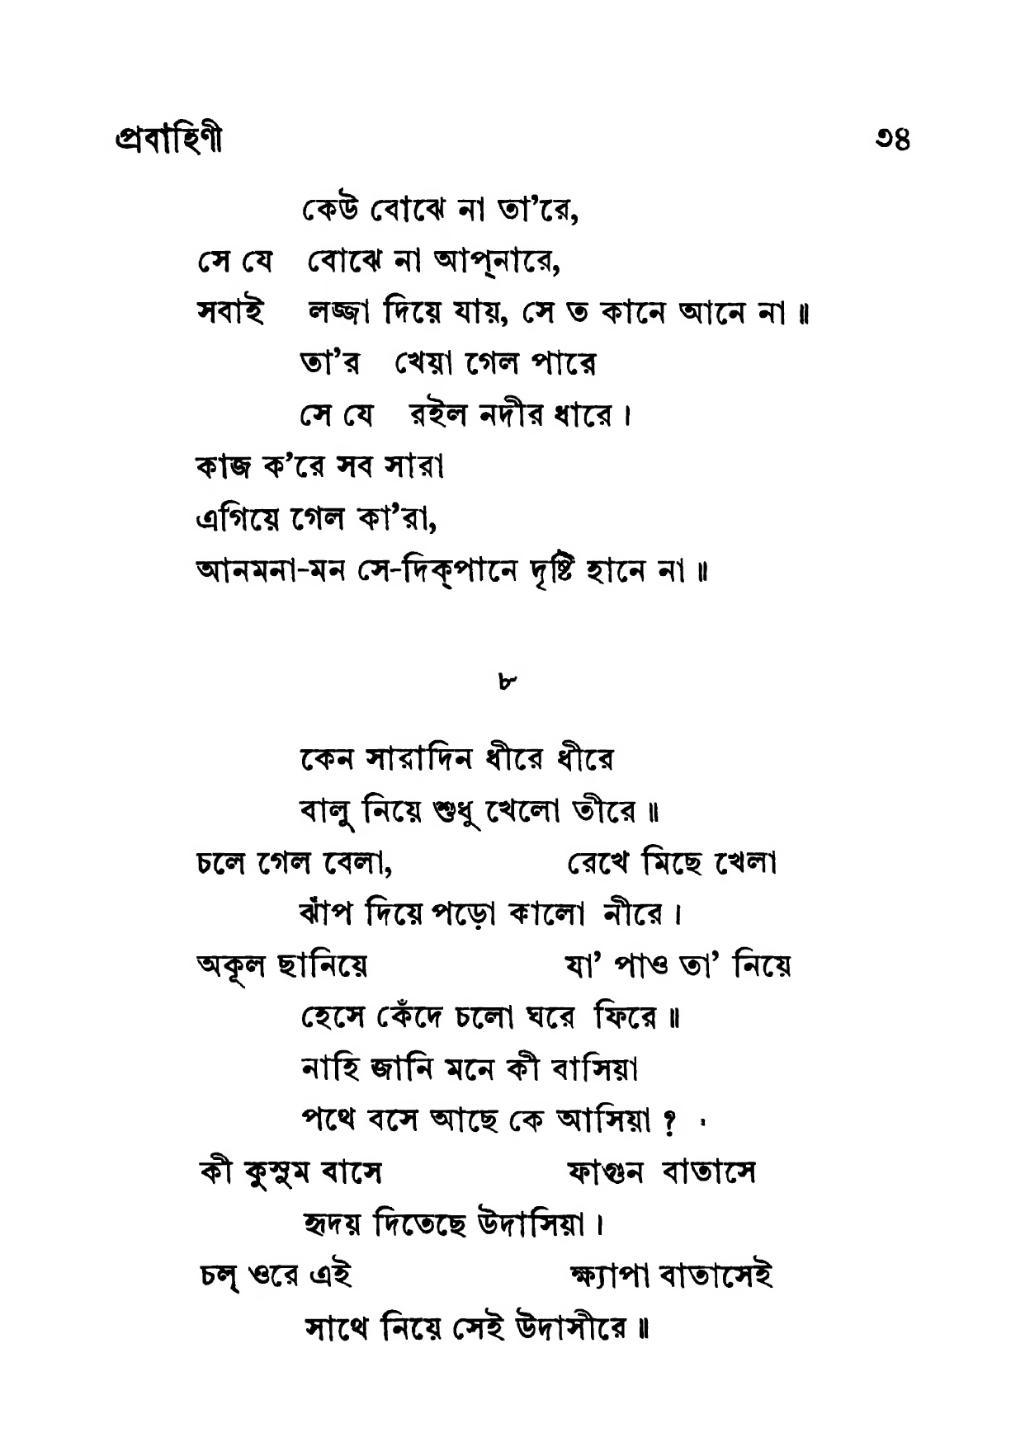 প্রবাহিণী ৩৪
কেউ বোঝে না তা’রে,
সে যে বোঝে না আপ্‌নারে,
সবাই লজ্জা দিয়ে যায়, সে ত কানে আনে না॥
তা’র খেয়া গেল পারে
সে যে রইল নদীর ধারে।
কাজ ক’রে সব সারা
এগিয়ে গেল কা’রা,
আনমনা-মন সে-দিক্‌পানে দৃষ্টি হানে না॥
৮
কেন সারাদিন ধীরে ধীরে
বালু নিয়ে শুধু খেলো তীরে॥
চলে গেল বেলা, রেখে মিছে খেলা
ঝাঁপ দিয়ে পড়ো কালো নীরে।
অকূল ছানিয়ে যা’ পাও তা’ নিয়ে
হেসে কেঁদে চলো ঘরে ফিরে॥
নাহি জানি মনে কী বাসিয়া
পথে বসে আছে কে আসিয়া?
কী কুসুম বাসে ফাগুন বাতাসে
হৃদয় দিতেছে উদাসিয়া।
চল্ ওরে এই ক্ষ্যাপা বাতাসেই
সাথে নিয়ে সেই উদাসীরে॥